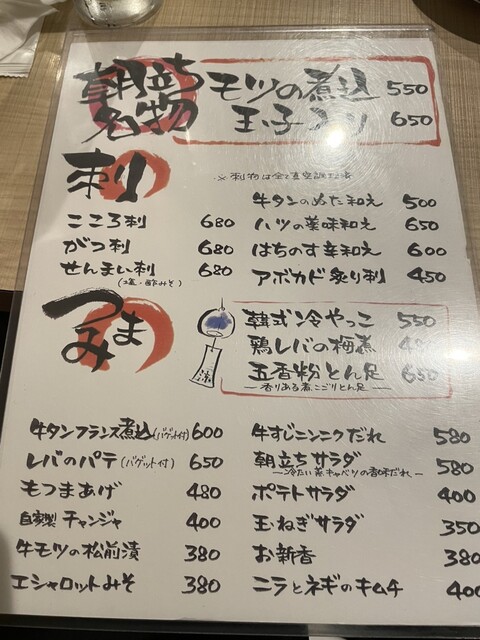 朝立ち名物
モツの煮込 550
玉子入り 650
刺り
※刺物は全て真空調理済
こころ刺 680
がつ刺 680
せんまい刺 680
(塩・酢みそ)
牛タンのぬた和え 500
ハツの薬味和え 650
はちのす辛和え 600
アボカド炙り刺 450
つまみ
涼
韓式冷やっこ 550
鶏レバの梅煮
五香粉とん足 650
―香りある煮こごりとん足―
牛タンフランス煮込(バゲット付) 600
レバのパテ(バゲット付) 650
もつまあげ 480
自家製チャンジャ 400
牛モツの松前漬 380
エシャロットみそ 380
牛すじニンニクだれ 580
朝立ちサラダ 580
―冷たい蒸キャベツの香味だれ―
ポテトサラダ 400
玉ねぎサラダ 350
お新香 380
ニラとネギのキムチ 400